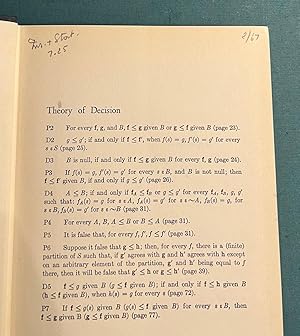 2/67
7.25
Theory of Decision
P2 For every f, g, and B, f ≤ g given B or g ≤ f given B (page 23).
D2 g ≤ g′; if and only if f ≤ f′, when f(s) = g, f′(s) = g′ for every
s ε S (page 25).
D3 B is null, if and only if f ≤ g given B for every f, g (page 24).
P3 If f(s) = g, f′(s) = g′ for every s ε B, and B is not null; then
f ≤ f′ given B, if and only if g ≤ g′ (page 26).
D4 A ≤ B; if and only if f_A ≤ f_B or g ≤ g′ for every f_A, f_B, g, g′
such that: f_A(s) = g for s ε A, f_A(s) = g′ for s ε ~A, f_B(s) = g, for
s ε B, f_B(s) = g′ for s ε ~B (page 31).
P4 For every A, B, A ≤ B or B ≤ A (page 31).
P5 It is false that, for every f, f′, f ≤ f′ (page 31).
P6 Suppose it false that g ≤ h; then, for every f, there is a (finite)
partition of S such that, if g′ agrees with g and h′ agrees with h except
on an arbitrary element of the partition, g′ and h′ being equal to f
there, then it will be false that g′ ≤ h or g ≤ h′ (page 39).
D5 f ≤ g given B (g ≤ f given B); if and only if f ≤ h given B
(h ≤ f given B), when h(s) = g for every s (page 72).
P7 If f ≤ g(s) given B (g(s) ≤ f given B) for every s ε B, then
f ≤ g given B (g ≤ f given B) (page 77).